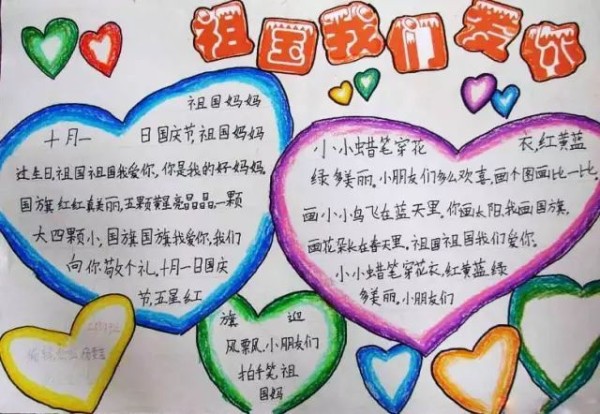 祖国我们爱你
祖国妈妈
十月一 日国庆节,祖国妈妈
过生日,祖国祖国我爱你,你是我的好妈妈。
国旗红红真美丽,五颗黄星亮晶晶,一颗
大四颗小,国旗国旗我爱你,我们
向你敬个礼,十月一日国庆
节,五星红
小小蜡笔穿花 衣,红黄蓝
绿多美丽。小朋友们多么欢喜,画个图画比一比。
画小小鸟飞在蓝天里。你画太阳,我画国旗。
画花朵长在春天里,祖国祖国我们爱你。
小小蜡笔穿花衣,红黄蓝绿
多美丽,小朋友们
旗 迎
风飘飘,小朋友们
拍手笑,祖
国妈